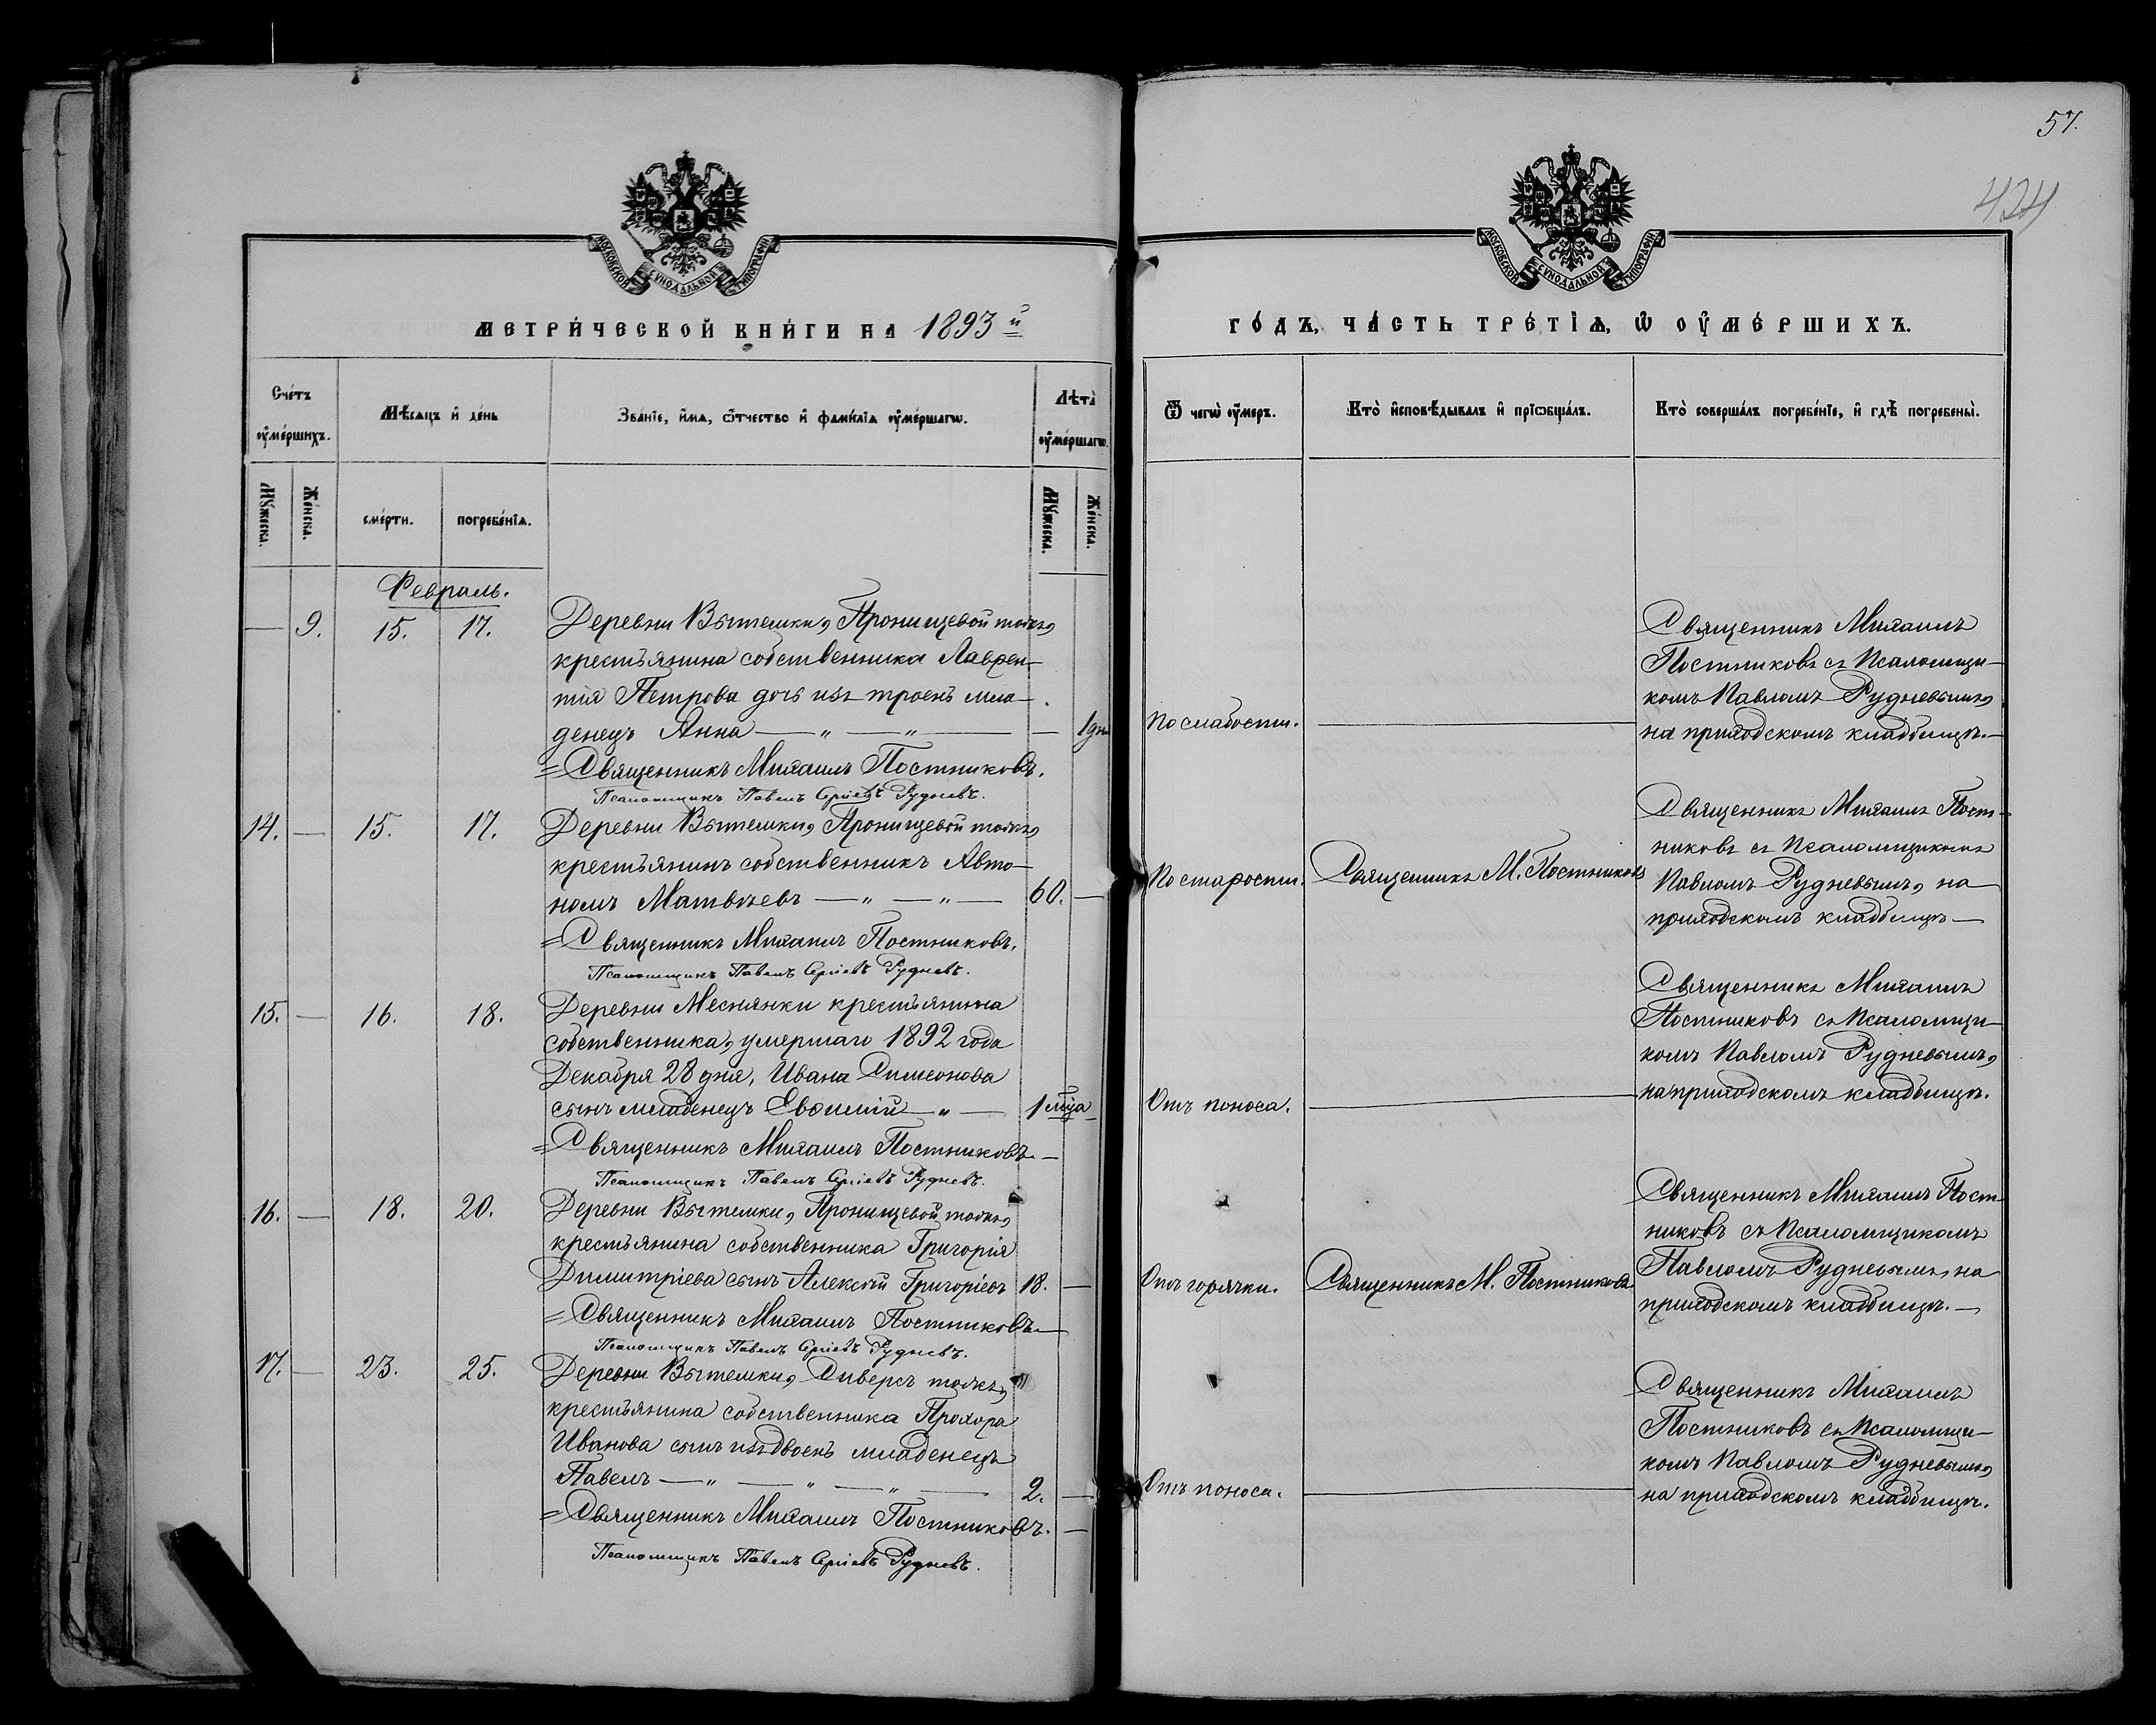 57.
424
МОСКОВСКОЙ СѴНОДАЛЬНОЙ ТИПОГРАФІИ
МОСКОВСКОЙ СѴНОДАЛЬНОЙ ТИПОГРАФІИ
МЕТРИ́ЧЕСКОЙ КНИ́ГИ НА 1893й
ГО́ДЪ, ЧА́СТЬ ТРЕ́ТІѦ, Ѡ ОУ҆МЕ́РШИХЪ.
Счéтъ оу҆мéршихъ.
Мѣ́сяцъ и҆ дéнь
Звáнїе, и҆́мѧ, ѻ҆́тчество и҆ фамѝлїѧ оу҆мéршагѡ.
Лѣ́та оу҆мéршагѡ.
Ѿ чегѡ̀ оу҆́меръ.
Ктò и҆сповѣ́дывалъ и҆ прїѡбщáлъ.
Ктò совершáлъ погребéнїе, и҆ гдѣ̀ погребены̀.
Мꙋ́жеска.
Жéнска.
смéрти.
погребéнїѧ.
Мꙋ́жеска.
Жéнска.
Февраль.
— 9. 15. 17. Деревни Вытемки, Пронищевой тожъ,
крестьянина собственника Лаврен-
тія Петрова дочь изъ троенъ мла-
денецъ Анна — „ — „ — — 1 дн
=Священникъ Михаилъ Постниковъ.
Псаломщикъ Павелъ Сергіевъ Рудневъ.
По слабости.
Священникъ Михаилъ
Постниковъ съ Псаломщи-
комъ Павломъ Рудневымъ,
на приходскомъ кладбищѣ.—
14. — 15. 17. Деревни Вытемки, Пронищевой тожъ,
крестьянинъ собственникъ Авто-
номъ Матвѣевъ — „ — „ — 60. —
=Священникъ Михаилъ Постниковъ.
Псаломщикъ Павелъ Сергіевъ Рудневъ.
По старости.
Священникъ М. Постниковъ
Священникъ Михаилъ Пост-
никовъ съ Псаломщикомъ
Павломъ Рудневымъ, на
приходскомъ кладбищѣ —
15. — 16. 18. Деревни Меснянки крестьянина
собственника, умершаго 1892 года
Декабря 28 дня, Ивана Симеонова
сынъ младенецъ Евѳимій — „ — 1 мца —
=Священникъ Михаилъ Постниковъ.—
Псаломщикъ Павелъ Сергіевъ Рудневъ.
Отъ поноса.
Священникъ Михаилъ
Постниковъ съ Псаломщи-
комъ Павломъ Рудневымъ,
на приходскомъ кладбищѣ.
16. — 18. 20. Деревни Вытемки, Пронищевой тожъ,
крестьянина собственника Григорія
Димитріева сынъ Алексѣй Григоріевъ 18. —
=Священникъ Михаилъ Постниковъ—
Псаломщикъ Павелъ Сергіевъ Рудневъ.
Отъ горячки.
Священникъ М. Постниковъ
Священникъ Михаилъ Пост-
никовъ съ Псаломщикомъ
Павломъ Рудневымъ, на
приходскомъ кладбищѣ.—
17. — 23. 25. Деревни Вытемки, Сиверсъ тожъ,
крестьянина собственника Прохора
Иванова сынъ изъ двоенъ младенецъ
Павелъ — „ — „ — „ — 2. —
=Священникъ Михаилъ Постниковъ. —
Псаломщикъ Павелъ Сергіевъ Рудневъ.
Отъ поноса.
Священникъ Михаилъ
Постниковъ съ Псаломщи-
комъ Павломъ Рудневымъ,
на приходскомъ кладбищѣ.